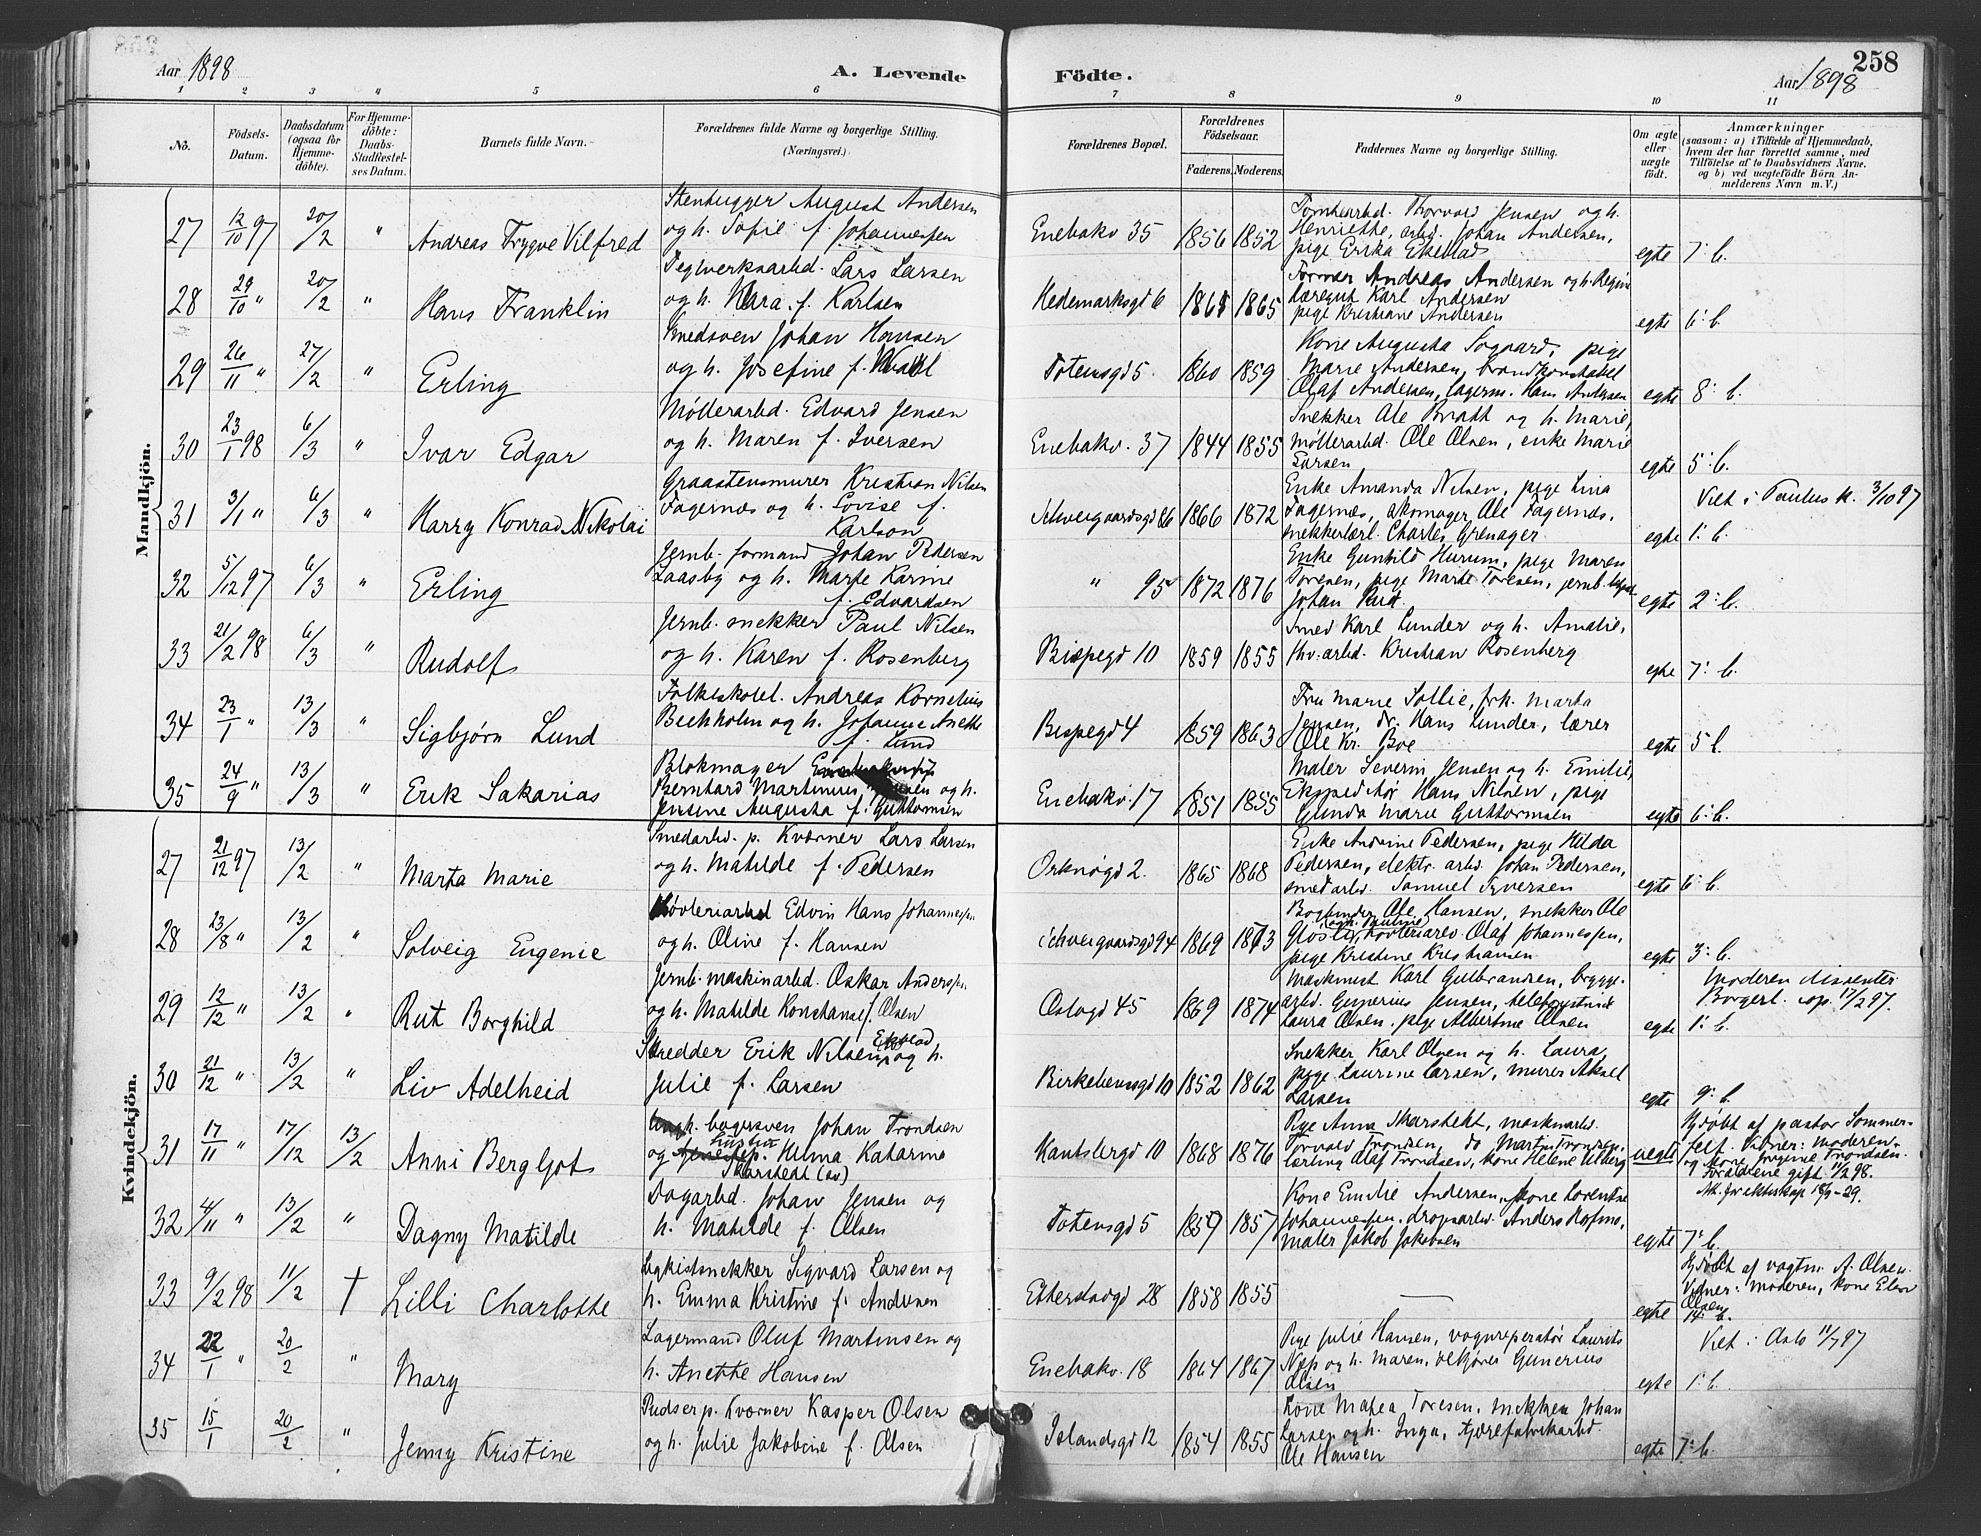 258
Aar 1898
A. Levende
Födte.
Aar 1898
1 2 3 " 5 6 7 8 9 10 11
No.
Födsels-
Datum.
Daabsdatum
(ogsaa for
Hjemme-
döbte).
For Hjemme-
döbte:
Daabs-
Stadfæstel-
ses Datum.
Barnets fulde Navn.
Forældrenes fulde Navne og borgerlige Stilling.
(Næringsvei.)
Forældrenes Bopæl.
Forældrenes
Födselsaar.
Faderens. Moderens.
Faddernes Navne og borgerlige Stilling.
Om ægte
eller
uægte
födt.
Anmærkninger
(saasom: a) i Tilfælde af Hjemmedaab,
hvem der har forrettet samme, med
Tilföielse af to Daabsvidners Navne.
og b) ved uægtefödte Börn An-
melderens Navn m. V.)
Mandkjön.
27 12/10 97 20/2 " Andreas Trygve Vilfred
Stenhugger August Andersen
og h. Sofie f. Johannessen
Enebakv 35 1856 1852
Tomtearbd. Thorvald Jensen og h.
Henriette, arbd. Johan Andersen,
pige Erika Ekeblad
egte 7: b.
28 29/10 " 20/2 " Hans Franklin
Teglverksarbd. Lars Larsen
og h. Klara f. Karlsen
Hedemarksgd 6 1865
Former Andreas Andersen og h. Regine
Læregut Karl Andersen
pige Kristiane Andersen
egte 6: b.
29 26/11 " 27/2 " Erling
Smedsven Johan Hansen
og h. Josefine f.
Totensgd 5. 1860 1859
Kone Augusta Sogaard, pige
Marie Andersen, brandkonstabel
Olaf Andersen, lagerm. Hans Andersen
egte 8: b.
30 23/1 98 6/3 " Ivar Edgar
Møllerarbd. Edvard Jensen
og h. Maren f. Iversen
Enebakv. 37 1844 1855
Snekker Ole Bratt og h. Marie,
Møllerarbd. Ole Olsen, enke Marie
Larsen
egte 5: b.
31 3/1 " 6/3 " Harry Konrad Nikolai
Graastensmurer Kristian Nilsen
Fagernæs og h. Lovise f.
Karlson
Schweigaardsgd 86 1866 1872
Enke Amanda Nilsen, pige Lina
Fagernæs, skomager Ole Fagernæs,
snekkerlærl. Charles Grenager
egte 1: b.
Viet i Paulus k. 3/10 97
32 5/12 97 6/3 " Erling
Jernb. formand Johan Pedersen
Laasby og h. Marte Karine
f. Edvardsen
" 95 1872 1876
Enke Gunhild Hurum, pige Maren
Toresen, pige Marte Toresen, jernb.
Johan Rud.
egte 2: b.
33 21/2 98 6/3 " Rudolf
Jernb. snekker Paul Nilsen
og h. Karen f. Rosenberg
Bispegd 10 1859 1855
Smed Karl Lunder og h. Amalie,
arbd. Kristian Rosenberg
egte 7: b.
34 23/1 " 13/3 " Sigbjørn Lund
Folkeskolel. Andreas Kornelius
Bechholm og h. Johanne Anette
f. Lund
Bispegd 4 1859 1863
Fru Marie Sollie, frk. Marta
Jensen, dr. Hans Lunder, lærer
Ole Kr. Boe
egte 5 b.
35 24/9 " 13/3 " Erik Sakarias
Blokmager
Bernhard Martinius og h.
Jensine Augusta f. Guttormsen
Enebakv. 17 1851 1855
Maler Severin Jensen og h. Emilie,
Ekspeditør Hans Nilsen, pige
Gunda Marie Guttormsen
egte 6: b.
Kvindekjön.
27 21/12 97 13/2 " Marta Marie
Smedarbd. p. Kværner Lars Larsen
og h. Matilde f. Pedersen
Orknøgd 2. 1865 1868
Enke Andrine Pedersen, pige Hilda
Pedersen, elektr. arbd. Johan Pedersen,
smedarbd. Samuel Syversen
egte 6: b.
28 23/8 " 13/2 " Solveig Eugenie
Høvleriarbd Edvin Hans Johannessen
og h. Oline f. Hansen
Schweigaardsgd 94 1869 1873
Bogbinder Ole Hansen, snekker Ole
(og h. Pauline)
høvleriarb. Olaf Johannessen,
pige Kristine Kristiansen
egte 3: b.
29 12/12 " 13/2 " Rut Borghild
Jernb. maskinarbd. Oskar Anderssen
og h. Matilde Konstanse f. Olsen
Oslogd 45 1869 1874
Maskinist Karl Gulbrandsen, brygge-
arbd. Gunerius Jensen, telefonistinde
Laura Olsen, pige Albertine Olsen
egte 1: b.
Moderen dissenter
Borgerl. op. 17/2 97.
30 21/12 " 13/2 " Liv Adelheid
Skredder Erik Nilsen Ekstad og h.
Julie f. Larsen
Birkebeinsgd 10 1852 1862
Snekker Karl Olsen og h. Laura,
pige Laurine Larsen, murer Aksel
Larsen
egte 9: b.
31 17/11 " 17/12 13/2 Anni Bergljot
Ungk. bagersven Johan Trondsen
og p. Helma Katarine
Skarstedt (sv)
Kantslergd 10 1868 1876
Pige Anna Skarstedt, maskinarbd.
Torvald Trondsen, do Martin Trondsen,
lærling Olaf Trondsen, kone Helene Ulberg
uegte
Hj.døbt af pastor Sommer-
felt. Vidner: Moderen
og kone Jørgine Trondsen.
Forældrene gift 11/2 98.
32 4/11 " 13/2 " Dagny Matilde
Dagarbd. Johan Jensen og
h. Matilde f. Olsen
Totensgd 5 1859 1857
Kone Emilie Andersen, kone Lorentse
Johannessen, dropsarbd. Anders Hofmo,
maler Jakob Jakobsen
egte 7: b.
33 9/2 98 11/2 † Lilli Charlotte
Ligkistsnekker Sigvard Larsen og
h. Emma Kristine f. Andersen
Etterstadgd 28 1858 1855 —
egte 14: b.
Hj.døbt af vagtm. A. Olsen.
Vidner: Moderen, kone Elen
Olsen
34 22/1 " 20/2 " Mary
Lagermand Oluf Martinsen og
h. Anette Hansen
Enebakv. 18 1864 1867
Pige Julie Hansen, vognreperatør Laurits
Næp og h. Maren, ølkjører Gunerius
Olsen
egte 1: b.
Viet i Oslo 11/7 97
35 15/1 20/2 " Jenny Kristine
Pudser p. Kværner Kasper Olsen
og h. Julie Jakobine f. Olsen
Islandsgd 12 1854 1855
Kone Matea Toresen, snekker Johan
Larsen og h. Inga, tjærefabrikarbd.
Ole Hansen
egte 7: b.